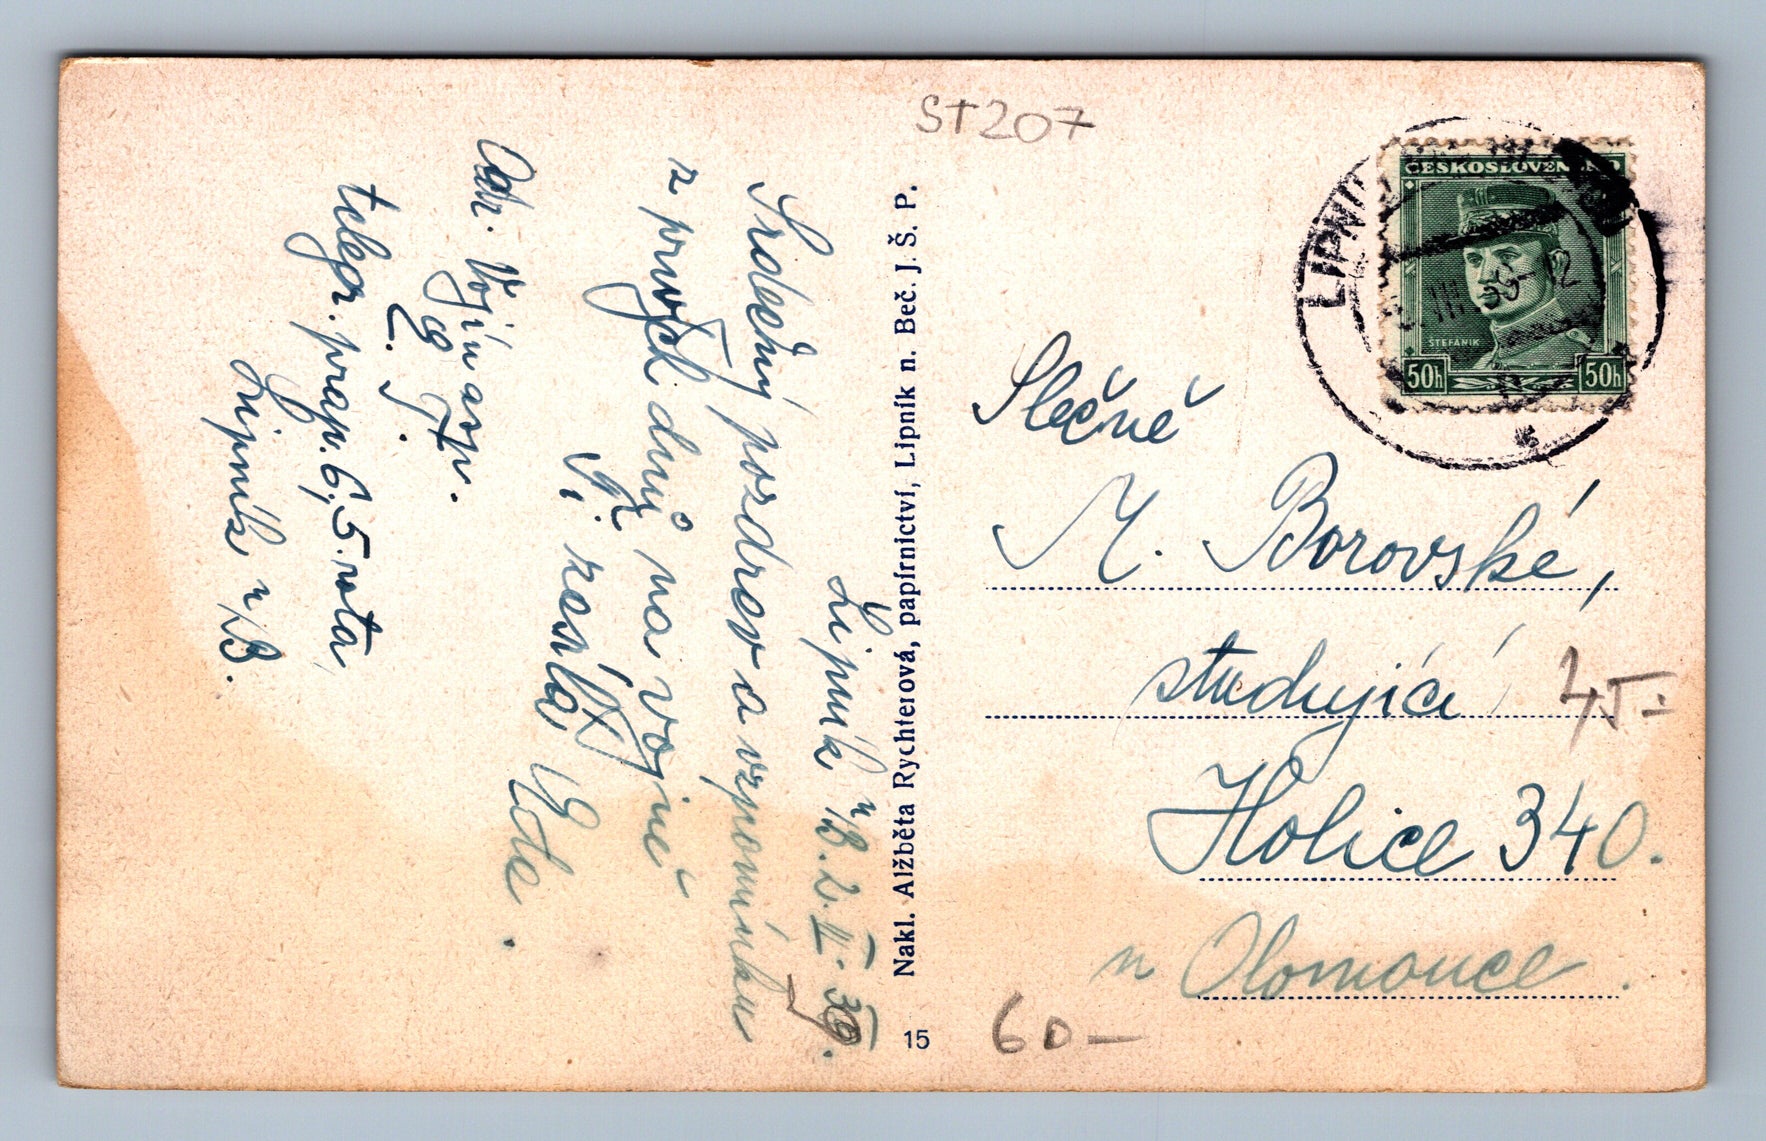 ST207
ČESKOSLOVENSKO
ŠTEFÁNIK
50h 50h
LIPNÍK
Slečně
M. Borovské,
studující
Holice 340.
u Olomouce.
60-
Nakl. Alžběta Rychterová, papírnictví, Lipník n. Beč. J. Š. P.
15
Lipník n/B. 2. III. 36.
Srdečný pozdrav a vzpomínku
z prvých dnů na vojně
Vám zasílá Eda.
Adr. Vojín asp.
E. J.
telegr. prap. 6, 5. rota,
Lipník n/B.